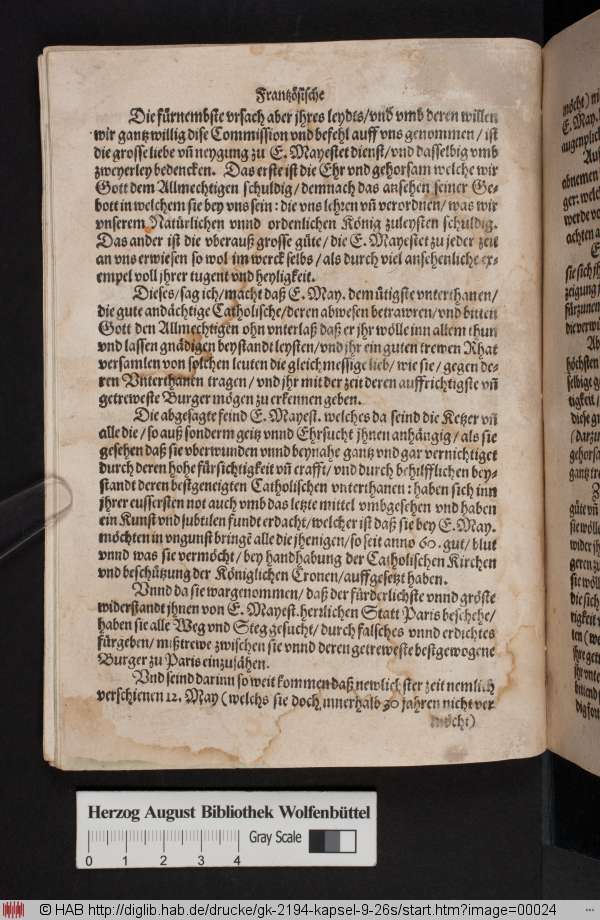 Frantzösische
Die fürnembste vrsach aber jhres leydts/vnd vmb deren willen
wir gantz willig dise Commission vnd befehl auff vns genommen/ist
die grosse liebe vn̄ neygung zu E. Mayestet dienst/vnd dasselbig vmb
zweyerley bedencken. Das erste ist die Ehr vnd gehorsam welche wir
Gott dem Allmechtigen schuldig/demnach das ansehen seiner Ge-
bott in welchem sie bey vns sein: die vns lehren vn̄ verordnen/was wir
vnserem Natürlichen vnnd ordenlichen König zuleysten schuldig.
Das ander ist die vberauß grosse güte/die E. Mayestet zu jeder zeit
an vns erwiesen so wol im werck selbs/als durch viel ansehenliche ex-
empel voll jhrer tugent vnd heyligkeit.
Dieses/sag ich/macht daß E. May. demütigste vnterthanen/
die gute andächtige Catholische/deren abwesen betrawren/vnd bitten
Gott den Allmechtigen ohn vnterlaß daß er jhr wölle inn allem thun
vnd lassen gnädigen beystandt leysten/vnd jhr ein guten trewen Rhat
versamlen von solchen leuten die gleichmessige lieb/wie sie/gegen de-
ren Vnterthanen tragen/vnd jhr mit der zeit deren auffrichtigste vn̄
getreweste Burger mögen zu erkennen geben.
Die abgesagte feind E. Mayest. welches da seind die Ketzer vn̄
alle die/so auß sonderm geitz vnnd Ehrsucht jhnen anhängig/als sie
gesehen daß sie vberwunden vnnd beynahe gantz vnd gar vernichtiget
durch deren hohe fürsichtigkeit vn̄ crafft/vnd durch behilfflichen bey-
standt deren bestgeneigten Catholischen vnterthanen: haben sich inn
jhrer eussersten not auch vmb das letzte mittel vmbgesehen vnd haben
ein Kunst vnd subtilen fundt erdacht/welcher ist daß sie bey E. May.
möchten in vngunst bringē alle die jhenigen/so seit anno 60. gut/blut
vnnd was sie vermöcht/bey handhabung der Catholischen Kirchen
vnd beschützung der Königlichen Cronen/auffgesetzt haben.
Vnnd da sie wargenommen/daß der fürderlichste vnnd gröste
widerstandt jhnen von E. Mayest. herzlichen Statt Paris beschehe/
haben sie alle Weg vnd Steg gesucht/durch falsches vnnd erdichtes
fürgeben/mißtrewe zwischen sie vnnd deren getreweste bestgewogene
Burger zu Paris einzusähen.
Vnd seind darinn so weit kommen daß newlichster zeit nemlich
verschienen 12. May (welchs sie doch innerhalb 30 jahren nicht ver
möcht)
Herzog August Bibliothek Wolfenbüttel
Gray Scale
0 1 2 3 4
© HAB http://diglib.hab.de/drucke/gk-2194-kapsel-9-26s/start.htm?image=00024